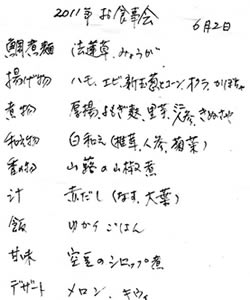 2011年お食事会
6月2日
鯛煮麺 法蓮草、みょうが
揚げ物 ハモ、エビ、新玉葱とコーン、オクラ、かぼちゃ
煮物 厚揚、よもぎ麩、里芋、人参、きぬさや
和え物 白和え(椎茸、人参、菊菜)
香の物 山蕗の山椒煮
汁 赤だし(なす、大葉)
飯 ゆかりごはん
甘味 空豆のシロップ煮
デザート メロン、キウイ